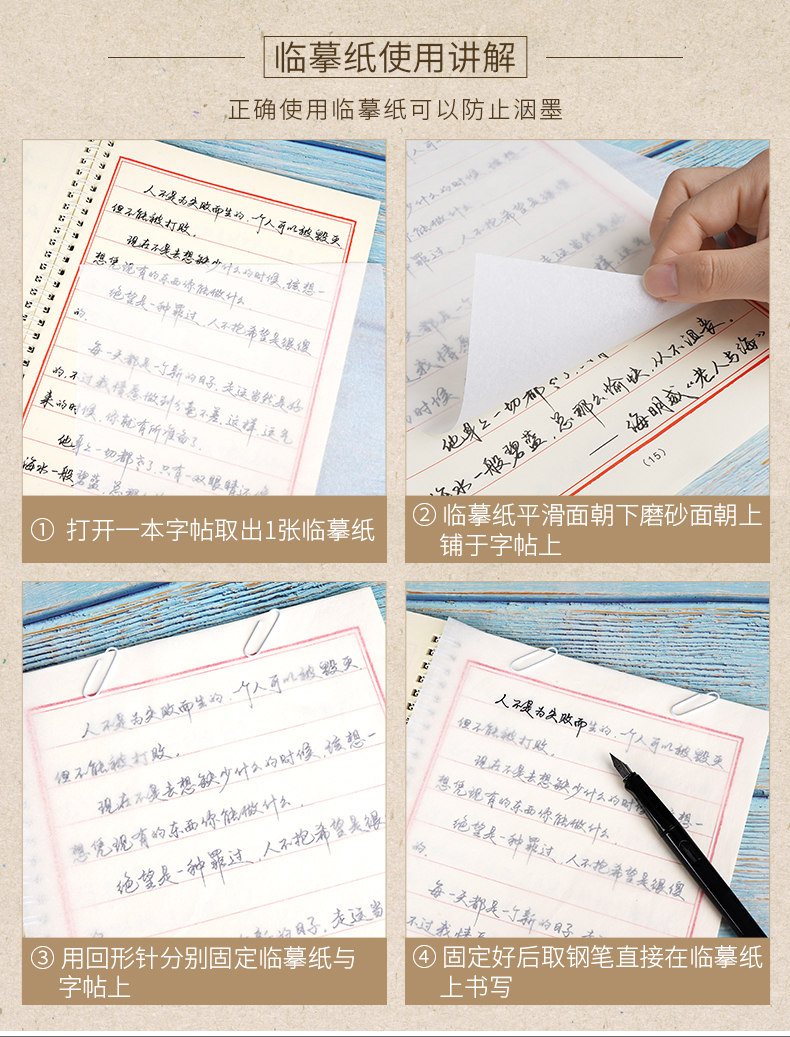 临摹纸使用讲解
正确使用临摹纸可以防止洇墨
人不是为失败而生的，一个人可以被毁灭
但不能被打败。
现在不是去想缺少什么的时候，该想一
想凭现有的东西你能做什么
绝望是一种罪过，人不抱希望是很傻
的。
每一天都是一个新的日子，走运当然是好
的，不过我情愿做到分毫不差，这样，运气
来的时候，你就有所准备了。
他身上一切都
海水一般碧蓝
① 打开一本字帖取出1张临摹纸
他身上一切都
海水一般碧蓝，总那么愉快，从不沮丧。
——海明威《老人与海》
(15)
② 临摹纸平滑面朝下磨砂面朝上
铺于字帖上
人不是为失败而生的，一个人可以被毁灭
但不能被打败。
现在不是去想缺少什么的时候，该想一
想凭现有的东西你能做什么。
绝望是一种罪过，人不抱希望是很
个新的日子，走运当
③ 用回形针分别固定临摹纸与
字帖上
人不是为失败而生的，一个人可以被毁灭
但不能被打败。
现在不是去想缺少什么的时
想凭现有的东西你能做什么
绝望是一种罪过，人不抱希望是很傻
的。
每一天都是一个新的日子，走
不过我情
④ 固定好后取钢笔直接在临摹纸
上书写